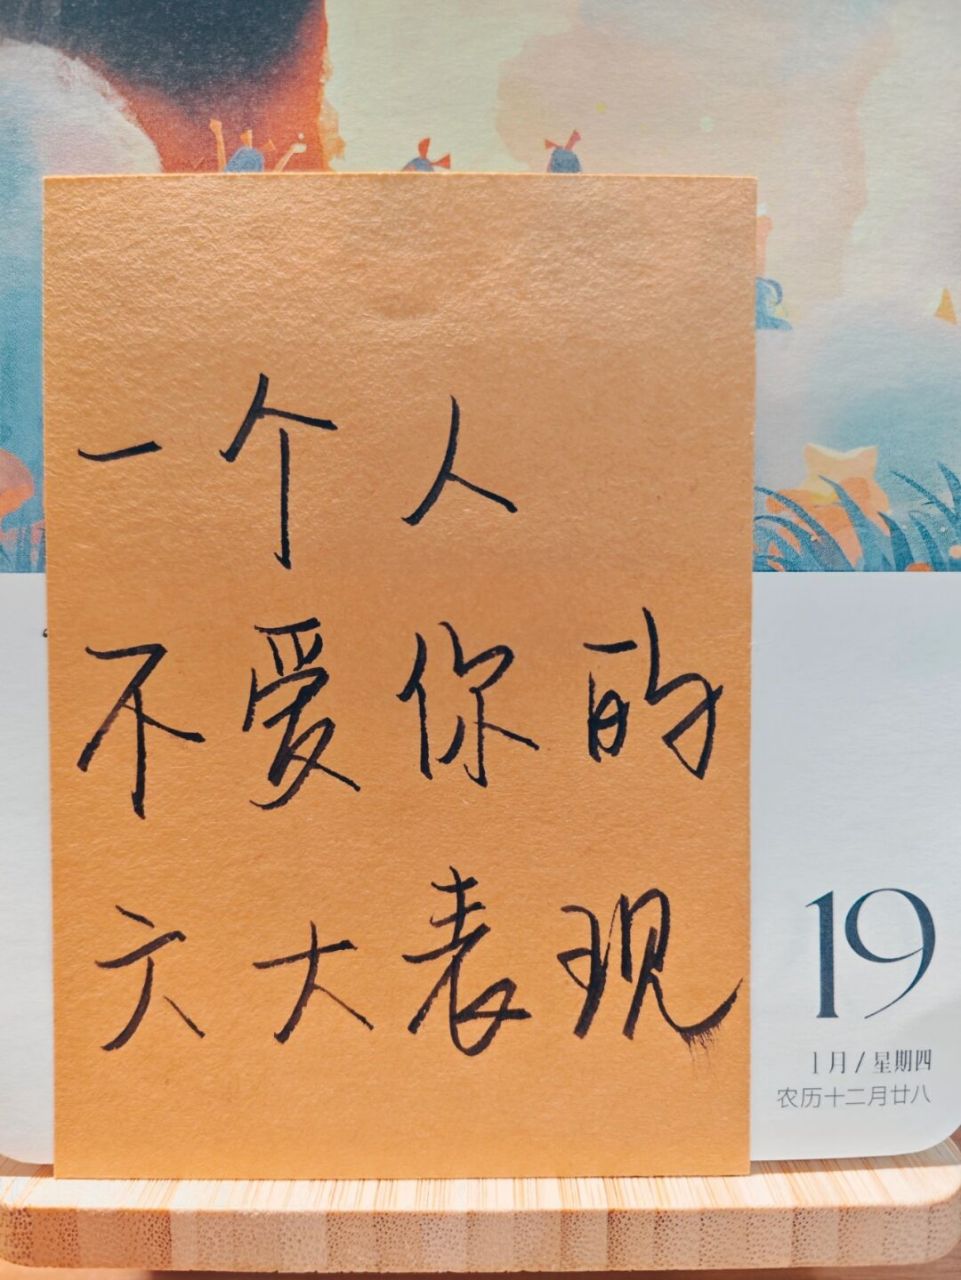 一个人
不爱你的
六大表现
19
1月/星期四
农历十二月廿八